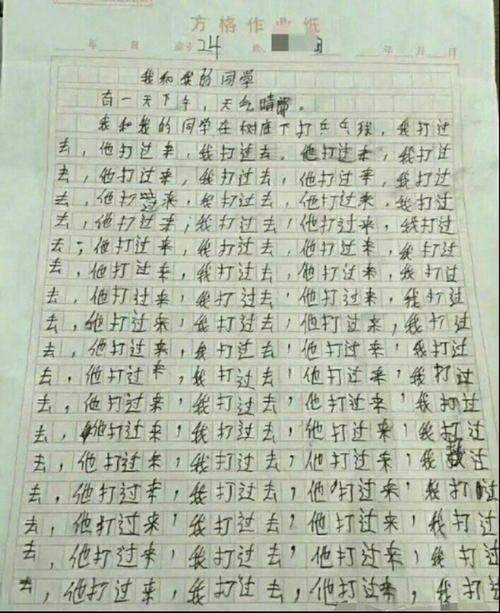 方格作业纸
年 24
我和我的同学
百一天下午，天气晴朗。
我和我的同学在树底下打乒乓球，我打过
去，他打过来，我打过去，他打过来，我打过
去，他打过来，我打过去，他打过来，我打过
去，他打过来，我打过去，他打过来，我打过
去，他打过来，我打过去，他打过来，我打过
去，他打过来，我打过去，他打过来，我打过
去，他打过来，我打过去，他打过来，我打过
去，他打过来，我打过去，他打过来，我打过
去，他打过来，我打过去，他打过来，我打过
去，他打过来，我打过去，他打过来，我打过
去，他打过来，我打过去，他打过来，我打过
去，他打过来，我打过去，他打过来，我打过
去，他打过来，我打过去，他打过来，我打过
去，他打过来，我打过去，他打过来，我过
去，他打过来，我打过去，他打过来，我打过
去，他打过来，我打过去，他打过来，我打过
去，他打过来，我打过去，他打过来，我打过
去，他打过来，我打过去，他打过来，我打过